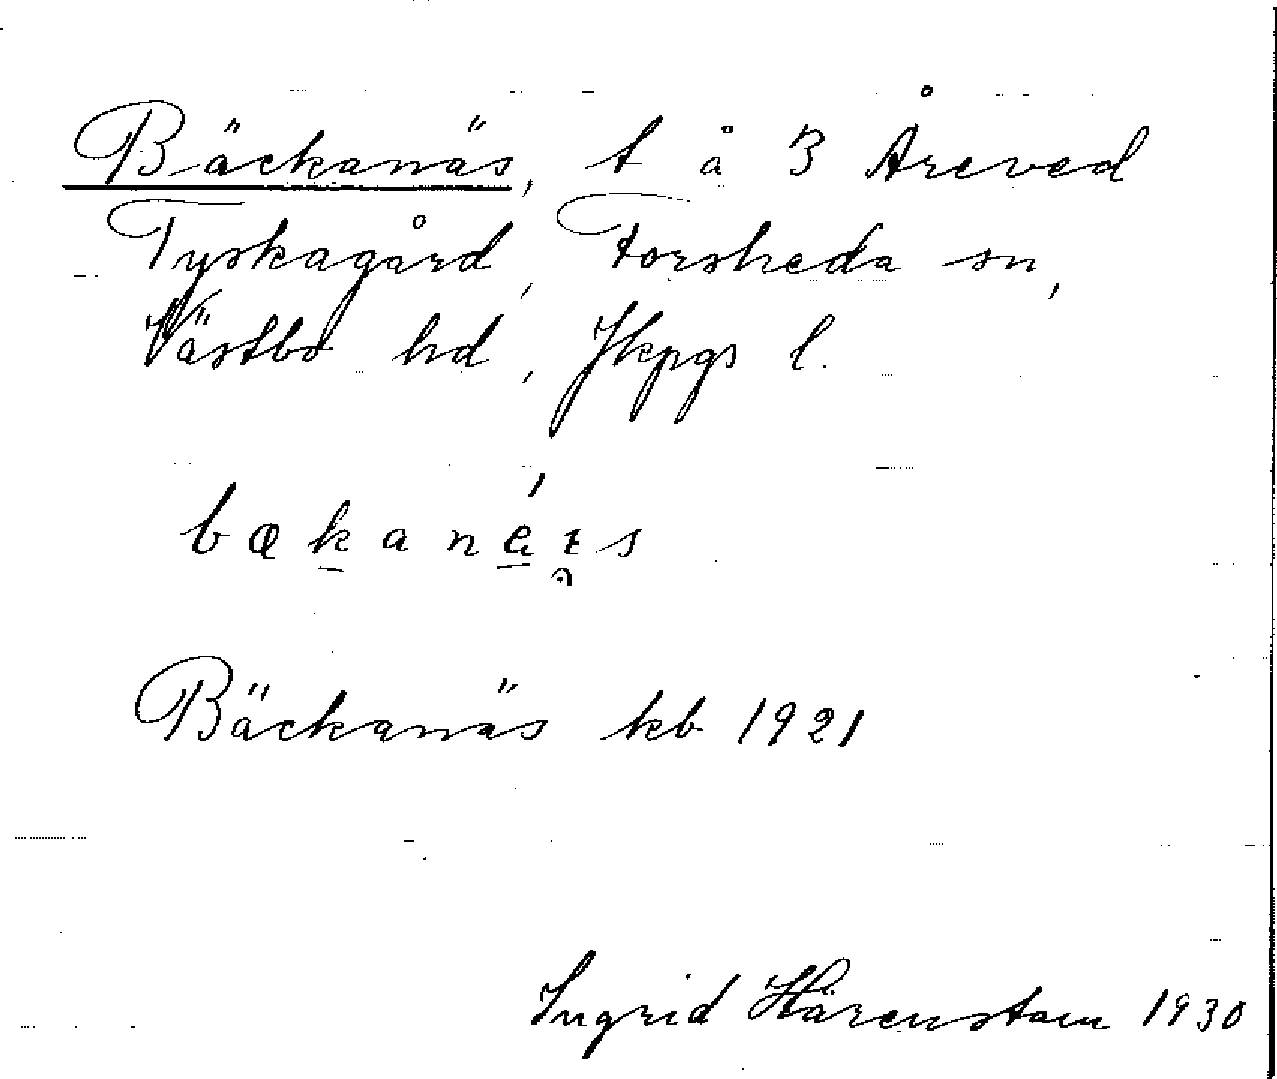 Bäckanäs, t å 3 Åreved
Tyskagård, Forsheda sn,
Västbo hd, Jkpgs l.
Bäckanäs kb 1921
Ingrid Härenstam 1930